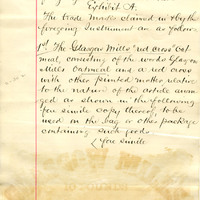 Exhibit A.
The trade marks claimed in & by the
foregoing Instrument are as follows
1st The Glasgow Mills "red cross" Oat
meal, consisting of the words Glasgow
Mills Oatmeal and a red cross
with other printed matter relative
to the nature of the article arran
ged as shown in the following
fac simile copy thereof, to be
used on the bag or other package
containing such goods.
Fac Simile